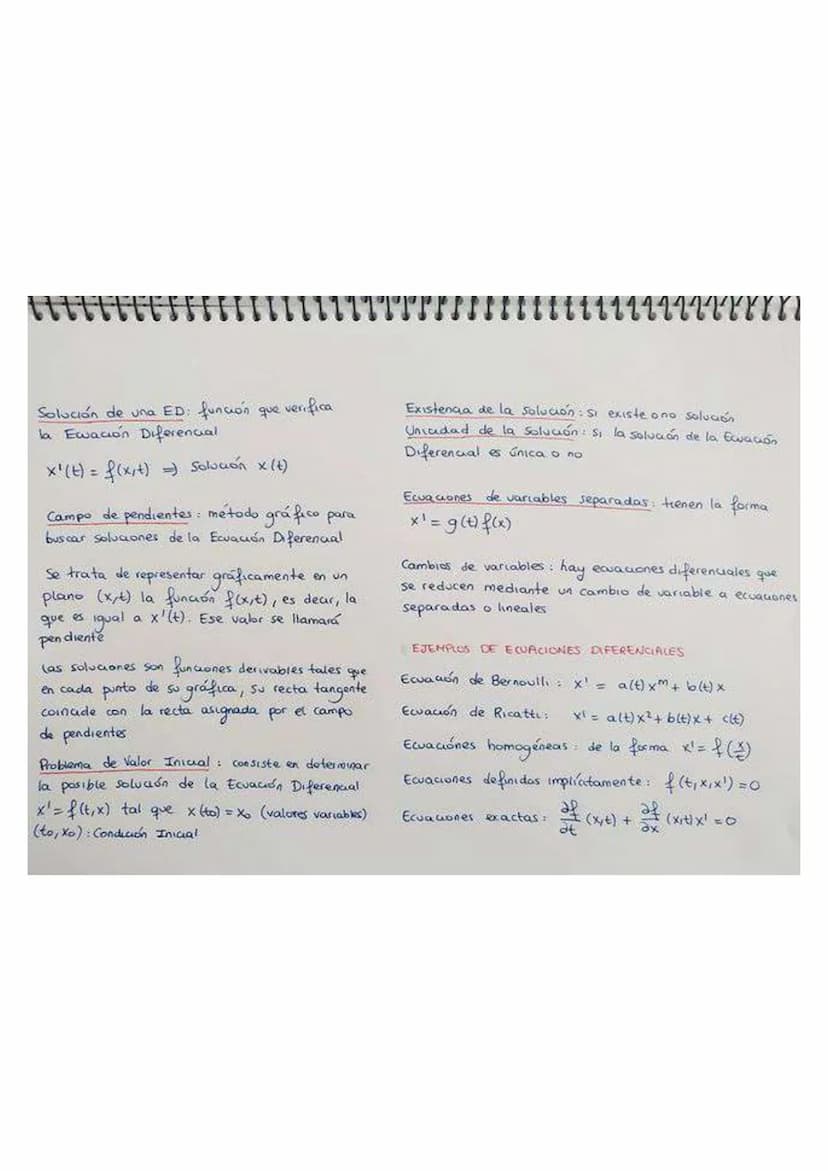 Solución de una ED: función que verifica
la Ecuación Diferencial
x'(t) = f(x,t) ⇒ Solución x(t)
Campo de pendientes: método gráfico para
buscar soluciones de la Ecuación Diferencial
Se trata de representar gráficamente en un
plano (x,t) la función f(x,t), es decir, la
que es igual a x'(t). Ese valor se llamará
pendiente
Las soluciones son funciones derivables tales que
en cada punto de su gráfica, su recta tangente
coincide con la recta asignada por el campo
de pendientes
Problema de Valor Inicial: consiste en determinar
la posible solución de la Ecuación Diferencial
x' = f(t,x) tal que x(t₀) = x₀ (valores variables)
(t₀, x₀): Condición Inicial
Existencia de la solución: Si existe o no solución
Unicidad de la solución: Si la solución de la Ecuación
Diferencial es única o no
Ecuaciones de variables separadas: tienen la forma
x' = g(t) f(x)
Cambios de variables: hay ecuaciones diferenciales que
se reducen mediante un cambio de variable a ecuaciones
separadas o lineales
EJEMPLOS DE ECUACIONES DIFERENCIALES
Ecuación de Bernoulli: x' = a(t)xᵐ + b(t)x
Ecuación de Ricatti: x' = a(t)x² + b(t)x + c(t)
Ecuaciónes homogéneas: de la forma x' = f(x/t)
Ecuaciones definidas implícitamente: f(t,x,x') = 0
Ecuaciones exactas: ∂f/∂t (x,t) + ∂f/∂x (x,t)x' = 0